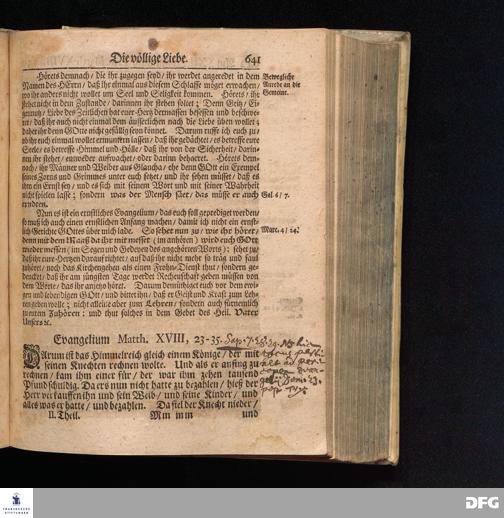 Die völlige Liebe. 641
Hörets demnach / die ihr zugegen seyd / ihr werdet angeredet in dem
Namen des HErrn / daß ihr einmal aus diesem Schlaffe möget erwachen /
wo ihr anders nicht wollet um Seel und Seligkeit kommen. Hörets / ihr
stehet nicht in dem Zustande / darinnen ihr stehen soltet; Denn Geitz / Ei-
gennutz / Liebe des Zeitlichen hat eure Hertz dermassen besessen und beschwe-
ret / daß ihr auch nicht einmal dem äusserlichen nach die Liebe üben wollet;
daher ihr denn GOtte nicht gefällig seyn könnet. Darum ruffe ich euch zu /
ob ihr euch einmal wollet ermuntern lassen / daß ihr gedächtet / es betreffe eure
Seele / es betreffe Himmel und Hölle / daß ihr von der Sicherheit / darin-
nen ihr stehet / entweder aufwachet / oder darinn beharret. Hörets dem-
nach / ihr Männer und Weiber aus Glaucha / ehe denn GOtt ein Exempel
seines Zorns und Grimmes unter euch setzet / und ihr sehen müsset / daß es
ihm ein Ernst sey / und es sich mit seinem Wort und mit seiner Wahrheit
nicht spielen lasse; sondern was der Mensch säet / das müsse er auch
erndten.
Nun es ist ein ernstliches Evangelium / das euch soll geprediget werden /
so muß ich auch einen ernstlichen Anfang machen / damit ich nicht ein ernst-
lich Gerichte GOttes über mich lade. So sehet nun zu / wie ihr höret /
denn mit dem Maaß da ihr mit messet (im anhören) wird euch GOtt
wieder messen / (im Segen und Gedeyen des angehörten Worts); sehet zu /
daß ihr eure Hertzen darauf richtet / auf daß ihr nicht mehr so träg und faul
zuhöret / noch das Kirchengehen als einen Frohn-Dienst thut / sondern ge-
dencket / daß ihr am jüngsten Tage werdet Rechenschaft geben müssen von
dem Worte / das ihr anjetzo höret. Darum demüthiget euch vor dem ewi-
gen und lebendigen GOtt / und bittet ihn / daß er Geist und Kraft zum Leh-
ren geben wolle; nicht alleine aber zum Lehren / sondern auch fürnemlich
zum rechten Zuhören: und thut solches in dem Gebet des Heil. Vater
Unsers &c.
Bewegliche
Anrede an die
Gemeine.
Gal. 6 / 7.
Marc. 4 / 24.
Evangelium Matth. XVIII, 23-35.
Darum ist das Himmelreich gleich einem Könige / der mit
seinen Knechten rechnen wolte. Und als er anfing zu
rechnen / kam ihm einer für / der war ihm zehen tausend
Pfund schuldig. Da ers nun nicht hatte zu bezahlen / hieß der
Herr verkauffen ihn und sein Weib / und seine Kinder / und
alles was er hatte / und bezahlen. Da fiel der Knecht nieder /
II. Theil. Mm mm und
FRANCKESCHE
STIFTUNGEN
DFG